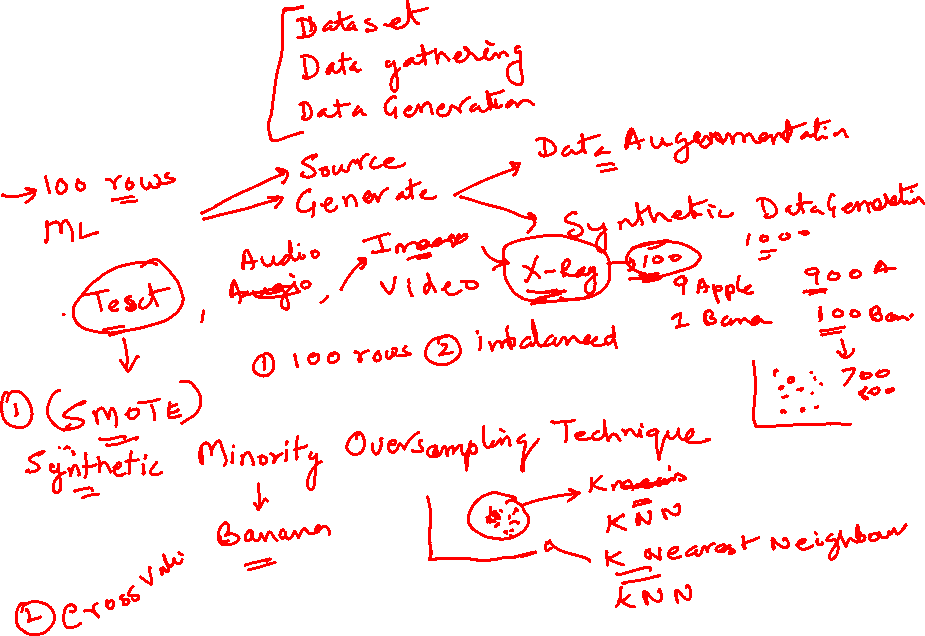 Dataset
Data gathering
Data Generation
→ 100 rows
ML
Source
Generate
Data Augenmentatin
Synthetic Data Generation
1000
Tesct
,
Audio
,
Image
Video
X-Ray
100
9 Apple 900 A
1 Bana 100 Ban
700
① 100 rows ② imbalanced
① (SMOTE)
Synthetic Minority Oversampling Technique
Banana
KNN
K Nearest Neighbour
KNN
② Cross Vali